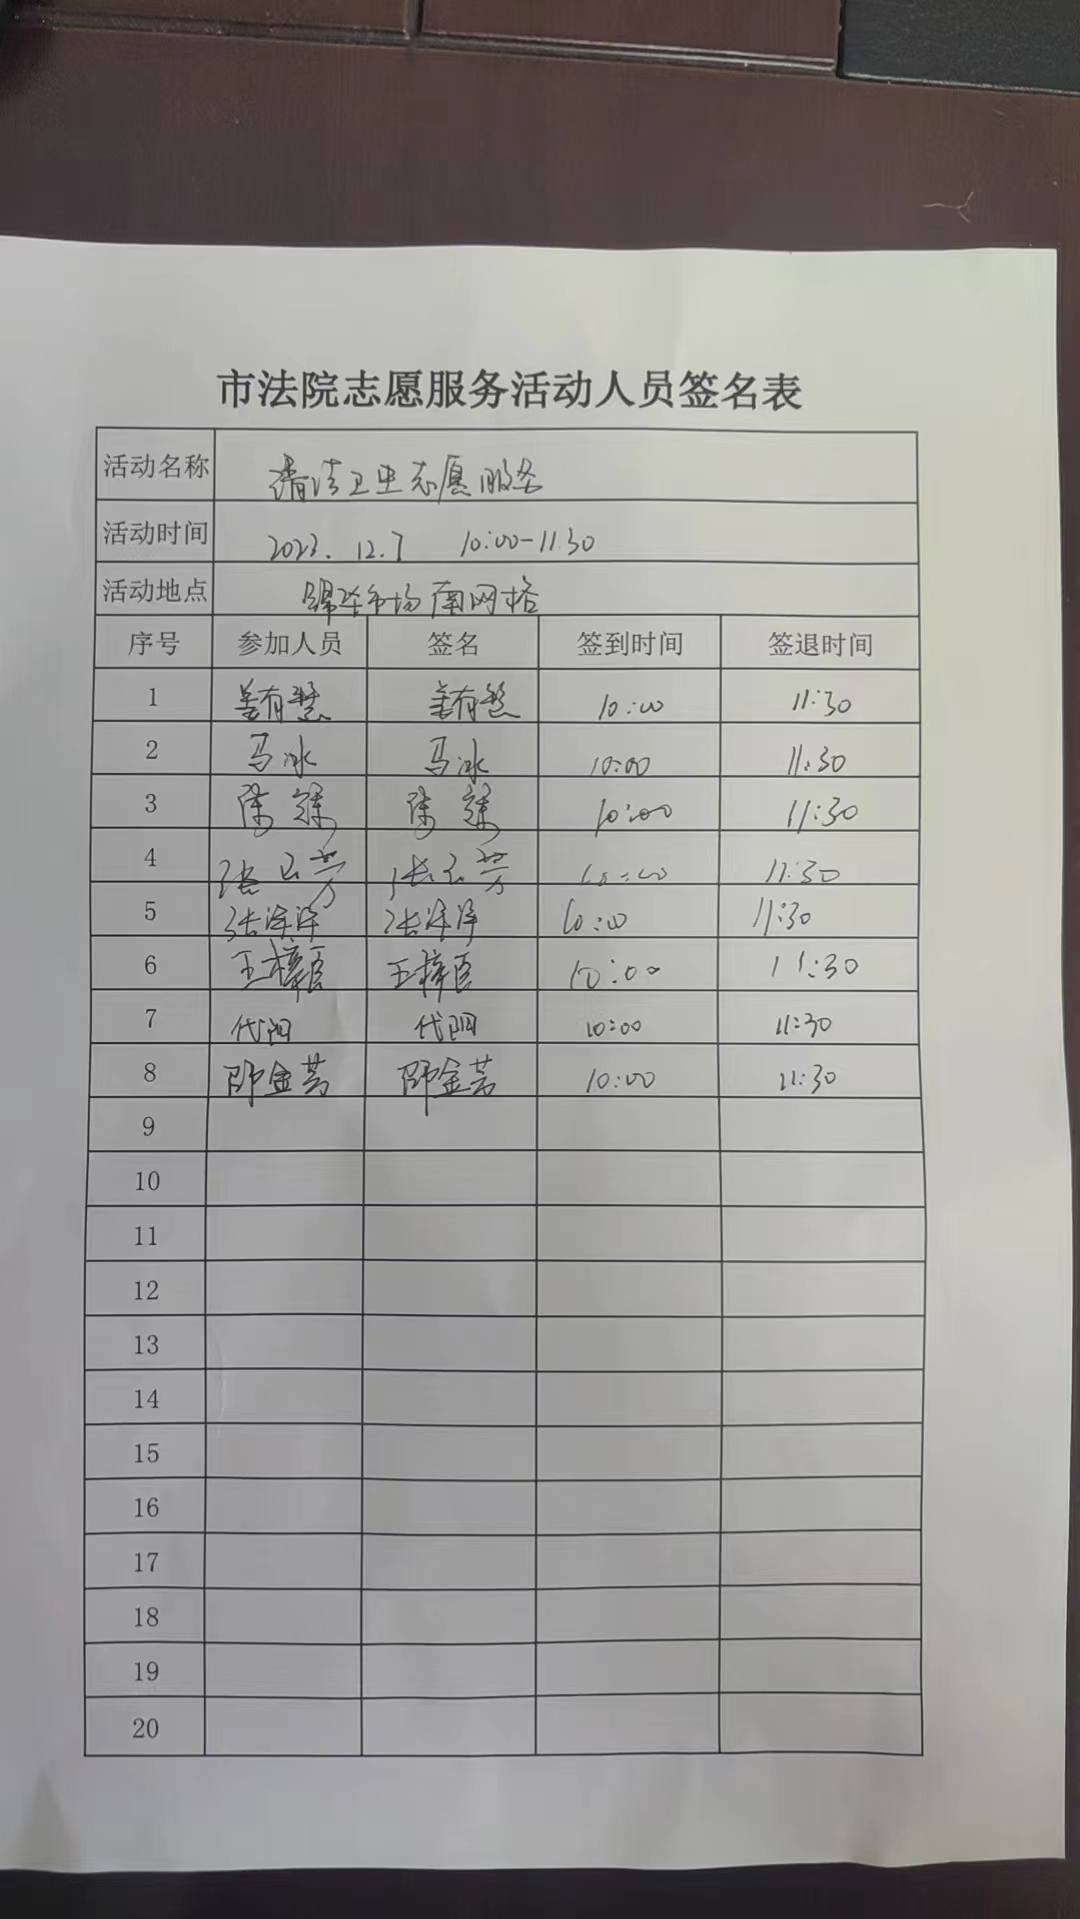 市法院志愿服务活动人员签名表
活动名称 清洁卫生志愿服务
活动时间 2023.12.7 10:00-11:30
活动地点 锦华市场南网格
序号 参加人员 签名 签到时间 签退时间
1 姜有慧 姜有慧 10:00 11:30
2 马冰 马冰 10:00 11:30
3 陈 陈 10:00 11:30
4 张玉芳 张玉芳 10:00 11:30
5 张泽泽 张泽泽 10:00 11:30
6 王梓臣 王梓臣 10:00 11:30
7 代阳 代阳 10:00 11:30
8 邵金芳 邵金芳 10:00 11:30
9
10
11
12
13
14
15
16
17
18
19
20